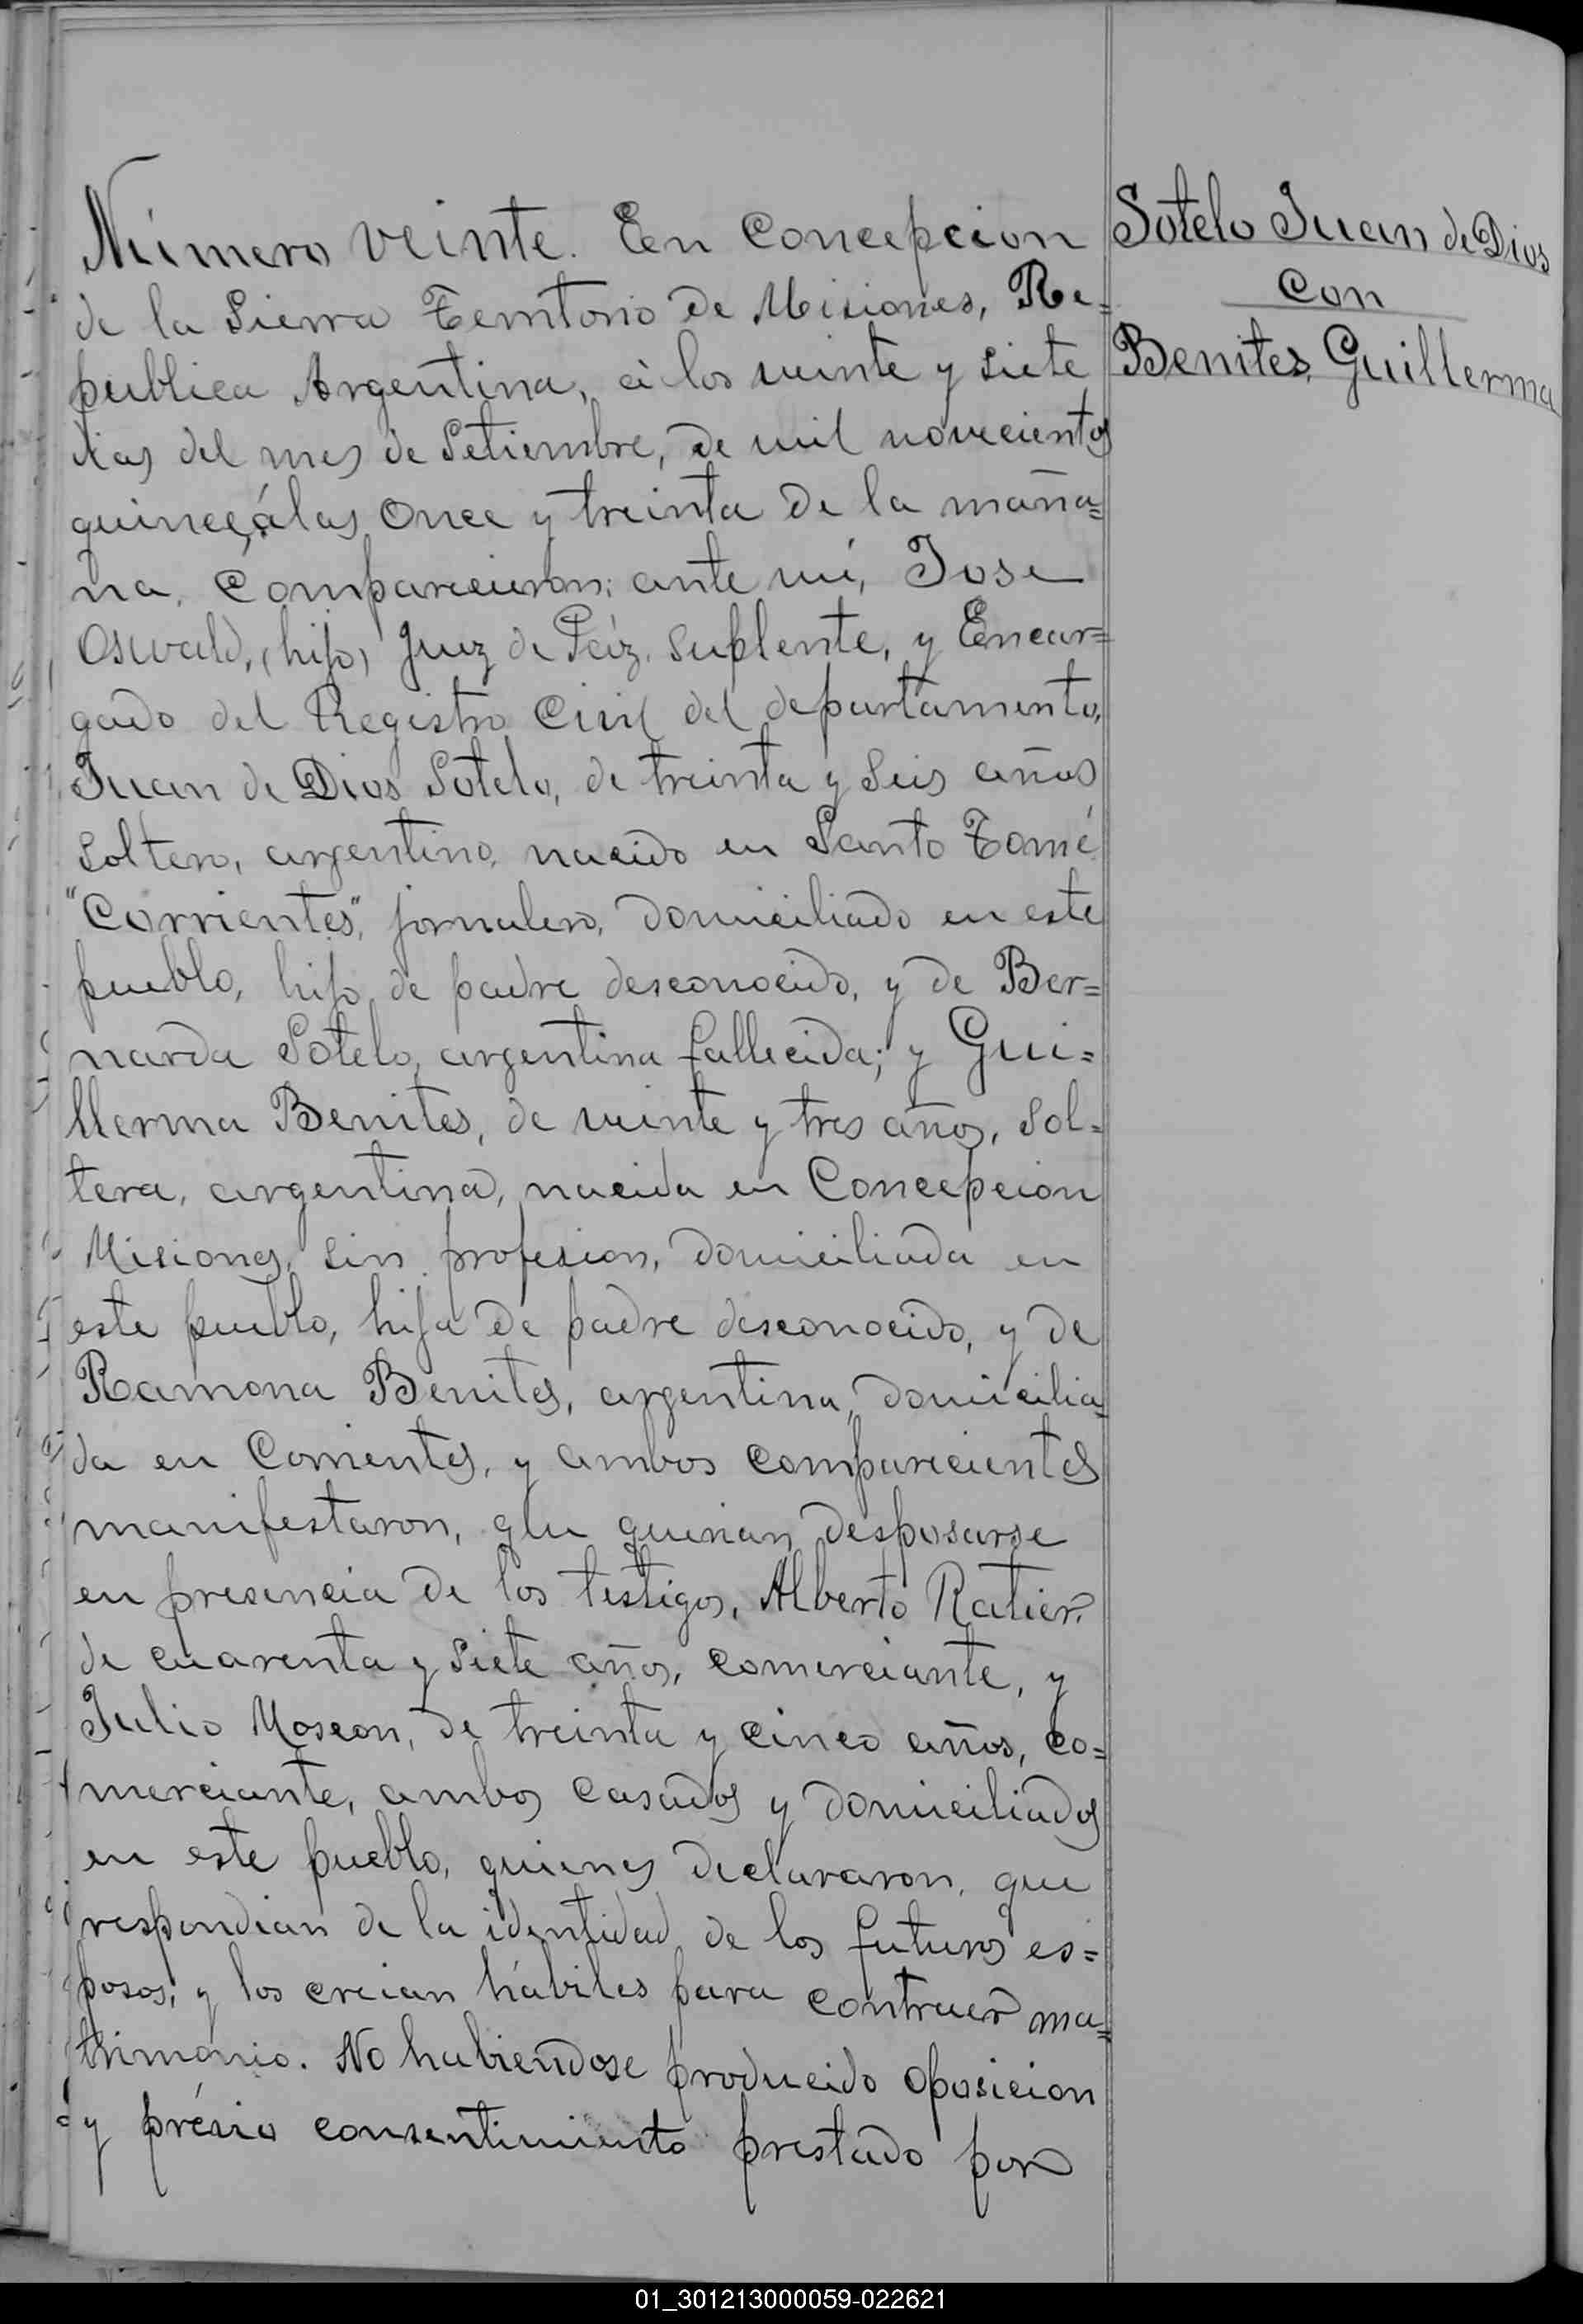 Número veinte. En Concepcion
de la Sierra Territorio de Misiones, Re=
publica Argentina, à los veinte y siete
dias del mes de Setiembre, de mil novecientos
quince, á las once y treinta de la maña=
na, Comparecieron: ante mí, Jose
Oswald, (hijo) Juez de Páz, Suplente, y Encar=
gado del Registro Civil del departamento,
Juan de Dios Sotelo, de treinta y seis años
Soltero, argentino, nacido en Santo Tomé
"Corrientes", jornalero, domiciliado en este
pueblo, hijo de padre desconocido, y de Ber=
narda Sotelo, argentina fallecida; y Gui=
llerma Benites, de veinte y tres años, Sol=
tera, argentina, nacida en Concepcion
Misiones, sin profesion, domiciliada en
este pueblo, hija de padre desconocido, y de
Ramona Benites, argentina, domicilia=
da en Corrientes, y ambos comparecientes
manifestaron, que querian desposarse
en presencia de los testigos, Alberto Ratier,
de cuarenta y siete años, comerciante, y
Julio Moseon, de treinta y cinco años, co=
merciante, ambos casados y domiciliados
en este pueblo, quienes declararon, que
respondian de la identidad de los futuros es=
posos; y los creian hábiles para contraer ma=
trimonio. No habiendose producido oposicion
y prévio consentimiento prestado por
Sotelo Juan de Dios
Con
Benites, Guillerma
01_301213000059-022621